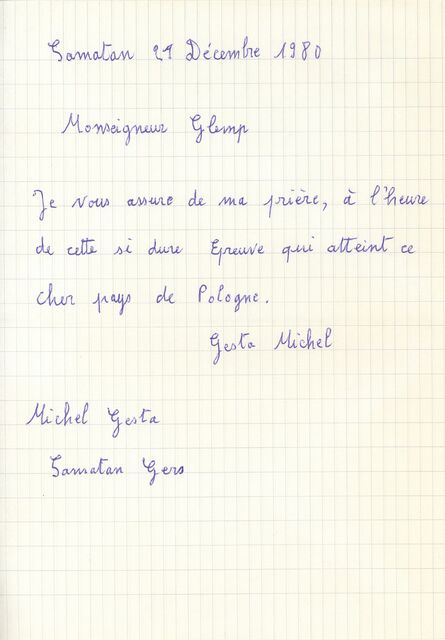 Samatan 29 Décembre 1980
Monseigneur Glemp
Je vous assure de ma prière, à l'heure
de cette si dure Epreuve qui atteint ce
cher pays de Pologne.
Gesta Michel
Michel Gesta
Samatan Gers